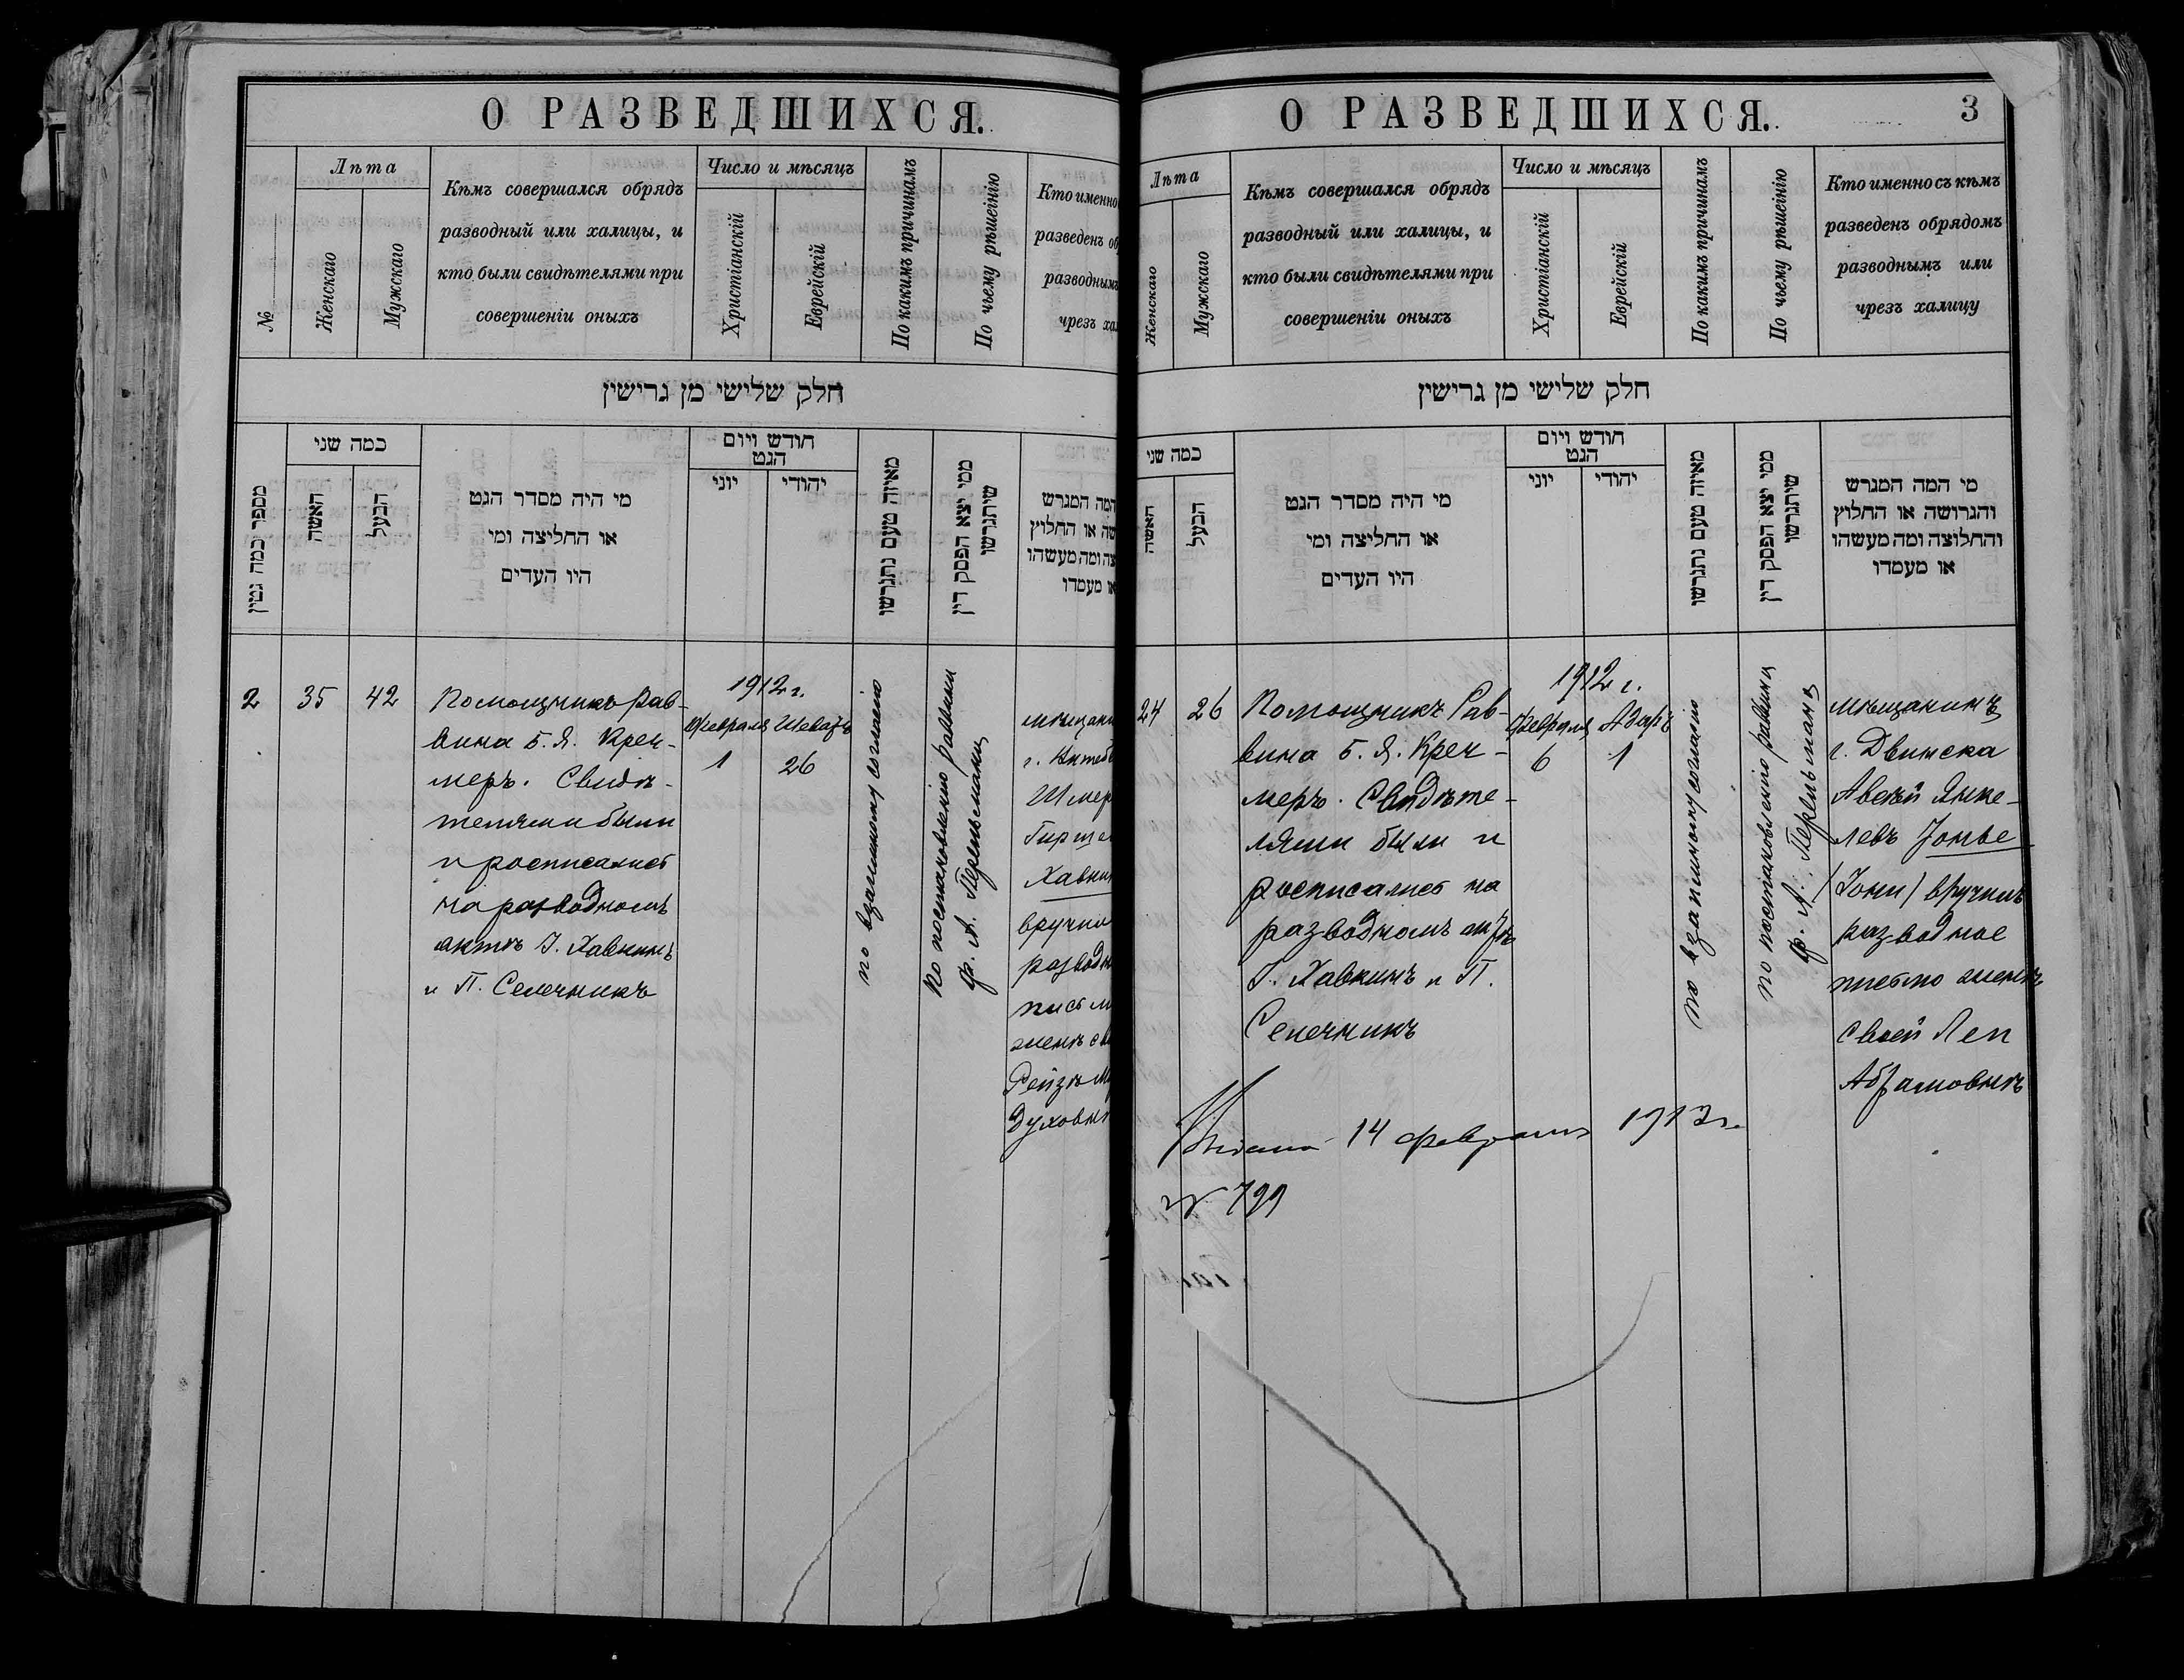 О РАЗВЕДШИХСЯ.
№
Лѣта
Женскаго
Мужскаго
Кѣмъ совершался обрядъ
разводный или халицы, и
кто были свидѣтелями при
совершеніи оныхъ
Число и мѣсяцъ
Христіанскій
Еврейскій
По какимъ причинамъ
По чьему рѣшеінію
Кто именно
разведенъ об
разводнымъ
чрезъ хал
חלק שלישי מן גרישין
מספר כמה גטין
כמה שני
האשה
הבעל
מי היה מסדר הגט
או החליצה ומי
היו העדים
חודש ויום
הגט
יוני
יהודי
מאיזה טעם נתגרשו
ממי יצא הפסק דין
שיתגרשו
המה המגרש
שה או החלוץ
צה ומה מעשהו
או מעמדו
2
35
42
Помощникъ Рав-
вина Б. Я. Креч-
меръ. Свидѣ-
телями были
и росписались
на разводномъ
актѣ І. Хавкинъ
и П. Селечникъ
1912 г.
Февраля Шеватъ
1 26
по взаимному согласію
по постановленію раввина
Ф. А. Перельмана
мѣщани
г. Витеб
Шмер
Гирше
Хавки
вручил
разводн
письм
женѣ св
Рейзѣ М
Духовн
О РАЗВЕДШИХСЯ.
3
Лѣта
Женскаго
Мужскаго
Кѣмъ совершался обрядъ
разводный или халицы, и
кто были свидѣтелями при
совершеніи оныхъ
Число и мѣсяцъ
Христіанскій
Еврейскій
По какимъ причинамъ
По чьему рѣшеінію
Кто именно съ кѣмъ
разведенъ обрядомъ
разводнымъ или
чрезъ халицу
חלק שלישי מן גרישין
כמה שני
האשה
הבעל
מי היה מסדר הגט
או החליצה ומי
היו העדים
חודש ויום
הגט
יוני
יהודי
מאיזה טעם נתגרשו
ממי יצא הפסק דין
שיתגרשו
מי המה המגרש
והגרושה או החלוץ
והחלוצה ומה מעשהו
או מעמדו
24
26
Помощникъ Рав-
вина Б. Я. Креч-
меръ. Свидѣте-
лями были и
росписались на
разводномъ актѣ
І. Хавкинъ и П.
Селечникъ
1912 г.
Февраля Адаръ
6 1
по взаимному согласію
по постановленію раввина
Ф. А. Перельмана
мѣщанинъ
г. Двинска
Авсѣй Янке-
левъ Іонье
(Іони) вручилъ
разводное
письмо женѣ
своей Леи
Абрамовнѣ
14 февраля 1913 г.
№ 799